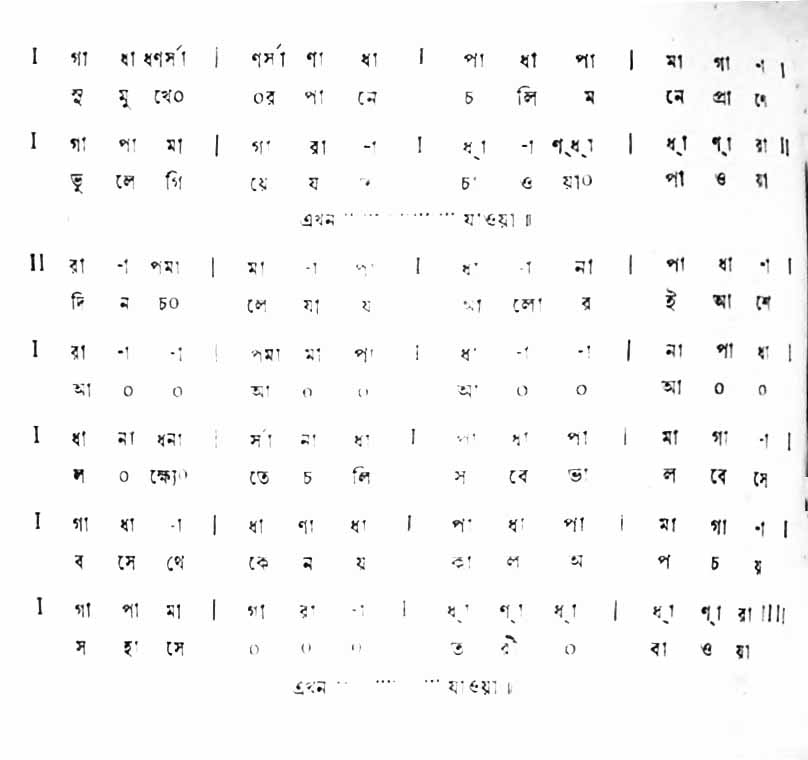 I গা ধা ধণর্সা | ণর্সা ণা ধা I পা ধা পা | মা গা -া I
সু মু খে০ ০র পা নে চ লি ম নে প্রা ণে
I গা পা মা | গা রা -া I ধ্‌া -া ণ্‌ধ্‌া | ধ্‌া ণ্‌া রা II
ভু লে গি য়ে য চা ও য়া০ পা ও য়া
এখন ... ... ... যাওয়া ॥
II রা -া পমা | মা -া পা I ধা -া না | পা ধা -া I
দি ন চ০ লে যা য আ লো র ই আ শে
I রা -া -া | পমা মা পা I ধা -া -া | না পা ধা I
আ ০ ০ আ ০ ০ আ ০ ০ আ ০ ০
I ধা না ধনা | র্সা না ধা I পা ধা পা | মা গা -া I
ল ০ ক্ষ্যে০ তে চ লি স বে ভা ল বে সে
I গা ধা -া | ধা ণা ধা I পা ধা পা | মা গা -া I
ব সে থে কে ন য কা ল অ প চ য়
I গা পা মা | গা রা -া I ধ্‌া ণ্‌া ধ্‌া | ধ্‌া ণ্‌া রা IIII
স হা সে ০ ০ ০ ত রী ০ বা ও য়া
এখন ... ... ... যাওয়া ॥